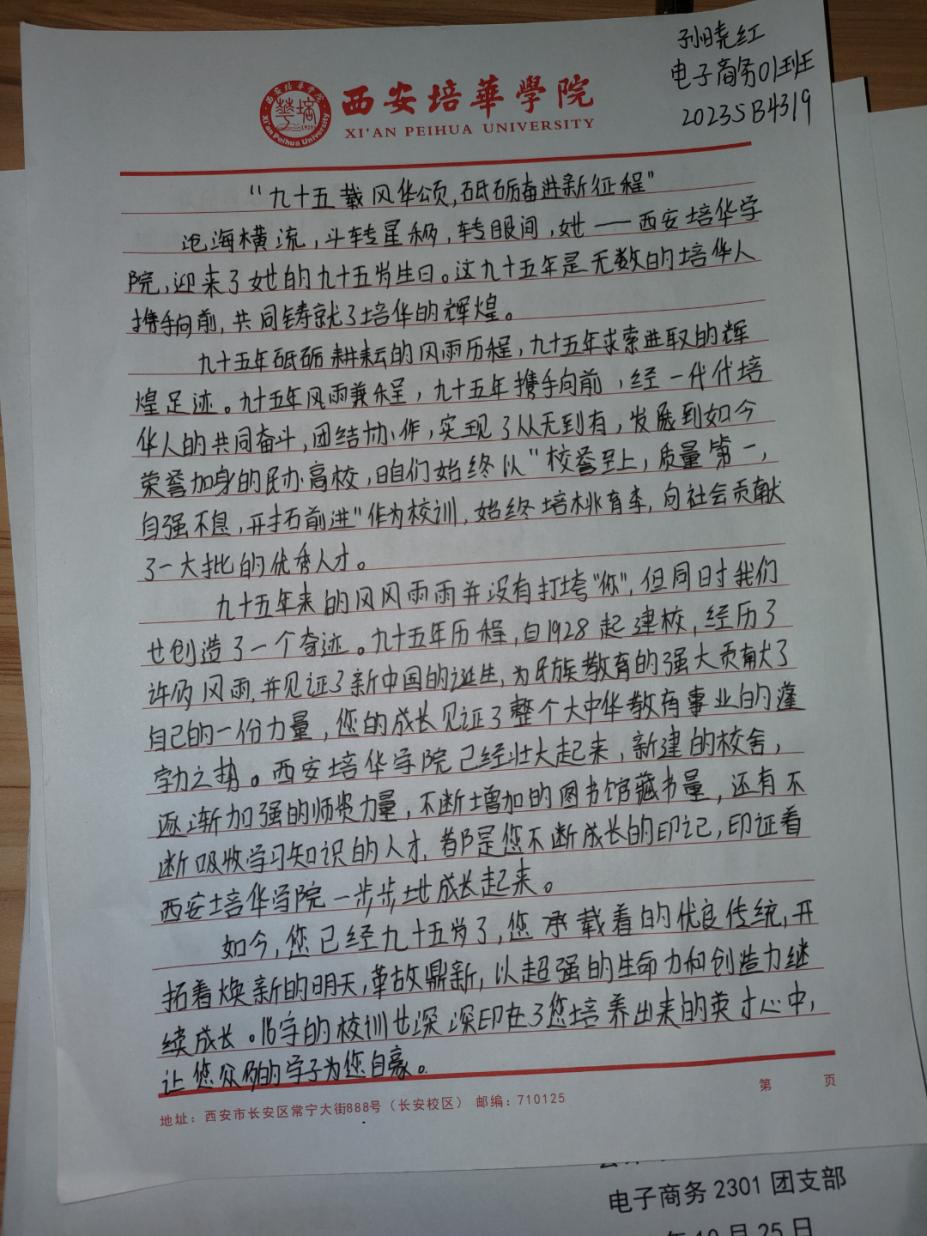 孙晓红
电子商务01班
2023SB4319
西安培華學院
XI'AN PEIHUA UNIVERSITY
"九十五载风华颂,砥砺奋进新征程"
沧海横流,斗转星移,转眼间,她——西安培华学
院,迎来了她的九十五岁生日。这九十五年是无数的培华人
携手向前,共同铸就了培华的辉煌。
九十五年砥砺耕耘的风雨历程,九十五年求索进取的辉
煌足迹。九十五年风雨兼程,九十五年携手向前,经一代代培
华人的共同奋斗,团结协作,实现了从无到有,发展到如今
荣誉加身的民办高校,咱们始终以"校誉至上,质量第一,
自强不息,开拓前进"作为校训,始终培桃育李,向社会贡献
了一大批的优秀人才。
九十五年来的风风雨雨并没有打垮"你",但同时我们
也创造了一个奇迹。九十五年历程,自1928起建校,经历了
许多风雨,并见证了新中国的诞生,为民族教育的强大贡献了
自己的一份力量,您的成长见证了整个大中华教育事业的蓬
勃之势。西安培华学院已经壮大起来,新建的校舍,
逐渐加强的师资力量,不断增加的图书馆藏书量,还有不
断吸收学习知识的人才,都是您不断成长的印记,印证着
西安培华学院一步步地成长起来。
如今,您已经九十五岁了,您承载着的优良传统,开
拓着焕新的明天,革故鼎新,以超强的生命力和创造力继
续成长。16字的校训也深深印在了您培养出来的英才心中,
让您众多的学子为您自豪。
第 页
地址:西安市长安区常宁大街888号(长安校区) 邮编:710125
电子商务2301团支部
年10月25日